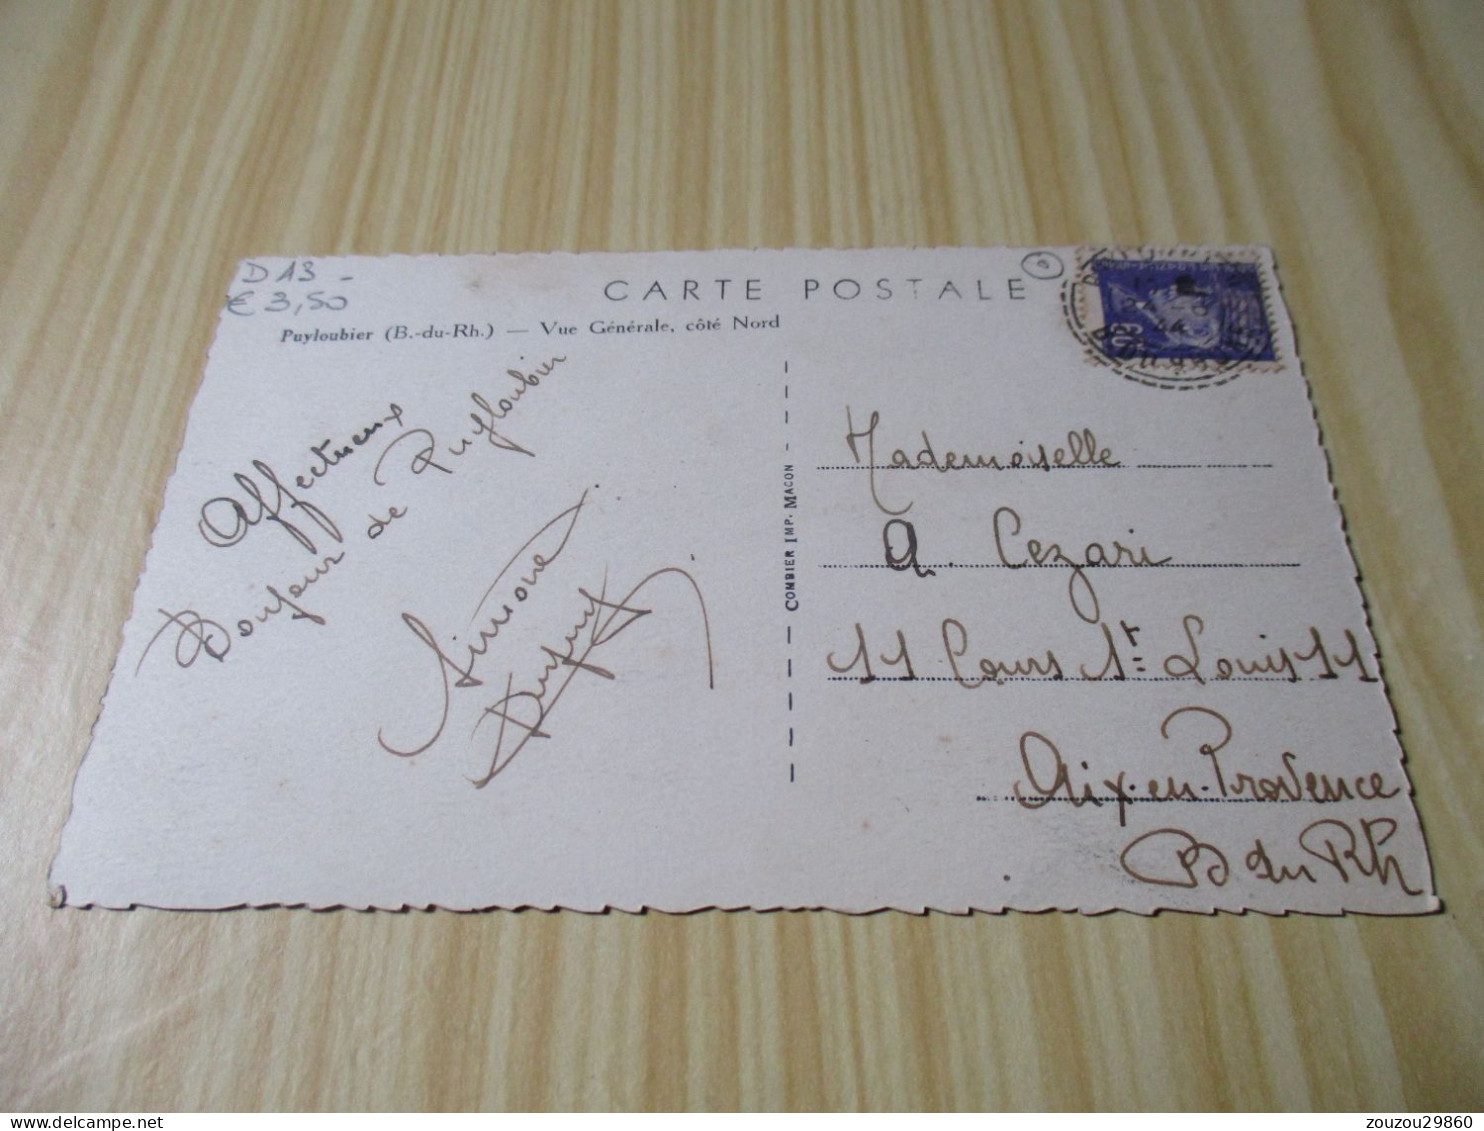 D 13 -
€ 3,50
CARTE POSTALE
Puyloubier (B.-du-Rh.) — Vue Générale, côté Nord
Affectueux
Bonjour de Puyloubier
Simone
Dupuy
COMBIER IMP. MACON
Mademoiselle
A. Cezari
11 Cours St Louis 11
Aix-en-Provence
B du Rh
zouzou29860